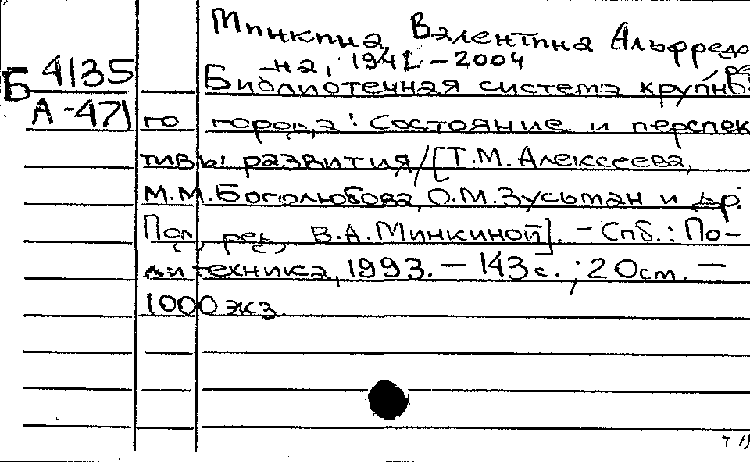 Минкина, Валентина Альфредов
на, 1941-2004
Б 4135 Библиотечная система крупно
А-471 го города: Состояние и перспек
тивы развития/[Т.М. Алексеева,
М.М. Боголюбова, О.М. Зусьман и др.
Под ред. В.А. Минкиной]. - Спб.: По-
литехника, 1993. - 143 с.; 20 см. -
1000 экз.